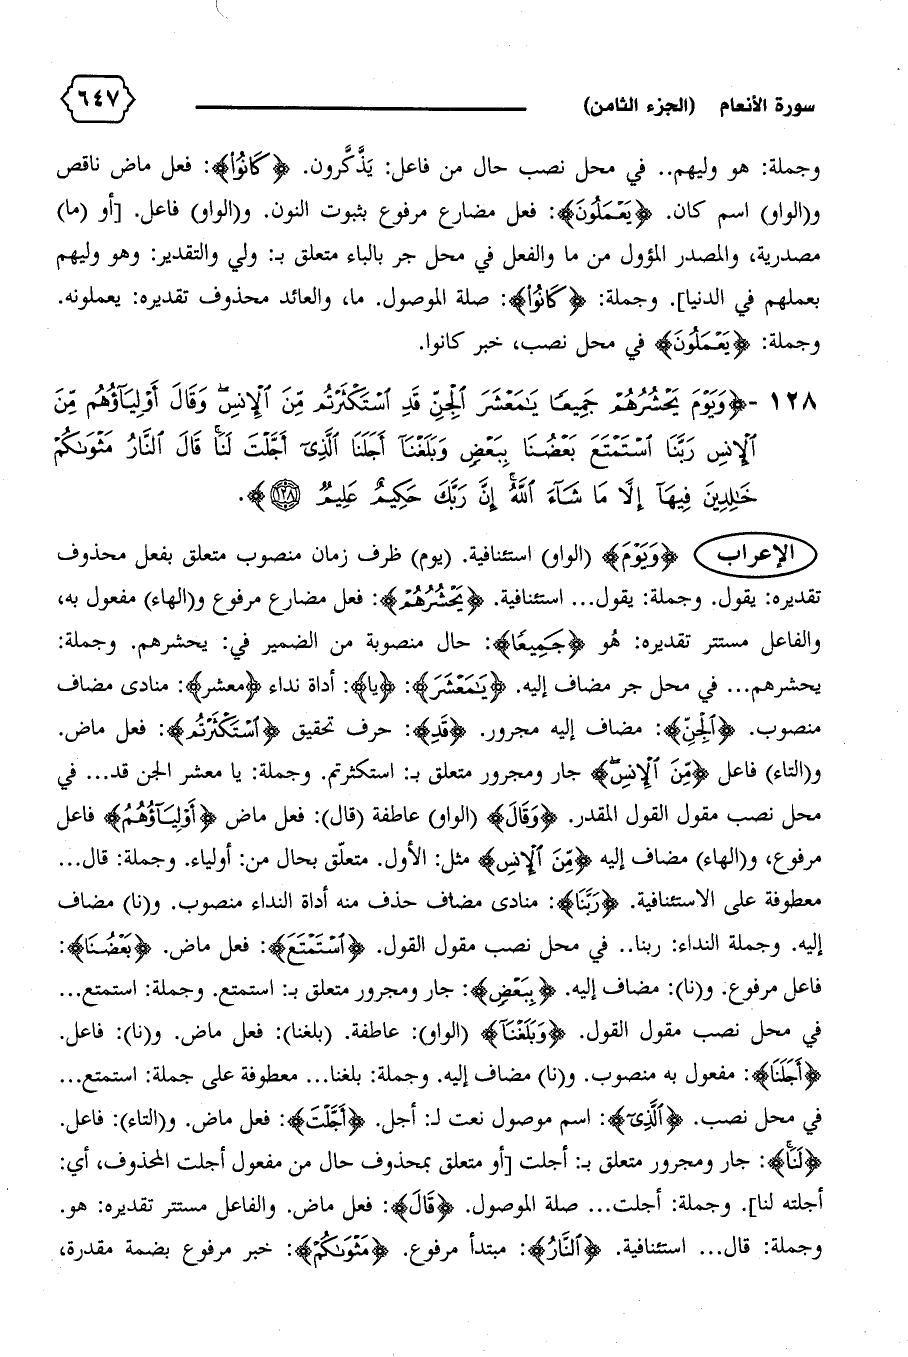 سورة الأنعام (الجزء الثامن) ٦٤٧
وجملة: هو وليهم.. في محل نصب حال من فاعل: يَذَّكَّرون. ﴿كَانُوا﴾: فعل ماض ناقص
و(الواو) اسم كان. ﴿يَعْمَلُونَ﴾: فعل مضارع مرفوع بثبوت النون. و(الواو) فاعل. [أو (ما)
مصدرية، والمصدر المؤول من ما والفعل في محل جر بالباء متعلق بـ: ولي والتقدير: وهو وليهم
بعملهم في الدنيا]. وجملة: ﴿كَانُوا﴾: صلة الموصول. ما، والعائد محذوف تقديره: يعملونه.
وجملة: ﴿يَعْمَلُونَ﴾ في محل نصب، خبر كانوا.
١٢٨ - ﴿وَيَوْمَ يَحْشُرُهُمْ جَمِيعًا يَٰمَعْشَرَ ٱلْجِنِّ قَدِ ٱسْتَكْثَرْتُم مِّنَ ٱلْإِنسِ ۖ وَقَالَ أَوْلِيَآؤُهُم مِّنَ
ٱلْإِنسِ رَبَّنَا ٱسْتَمْتَعَ بَعْضُنَا بِبَعْضٍ وَبَلَغْنَآ أَجَلَنَا ٱلَّذِىٓ أَجَّلْتَ لَنَا ۚ قَالَ ٱلنَّارُ مَثْوَىٰكُمْ
خَٰلِدِينَ فِيهَآ إِلَّا مَا شَآءَ ٱللَّهُ ۗ إِنَّ رَبَّكَ حَكِيمٌ عَلِيمٌ ١٢٨﴾.
الإعراب ﴿وَيَوْمَ﴾ (الواو) استئنافية. (يوم) ظرف زمان منصوب متعلق بفعل محذوف
تقديره: يقول. وجملة: يقول... استئنافية. ﴿يَحْشُرُهُمْ﴾: فعل مضارع مرفوع و(الهاء) مفعول به،
والفاعل مستتر تقديره: هُو ﴿جَمِيعًا﴾: حال منصوبة من الضمير في: يحشرهم. وجملة:
يحشرهم... في محل جر مضاف إليه. ﴿يَٰمَعْشَرَ﴾: ﴿يا﴾: أداة نداء ﴿معشر﴾: منادى مضاف
منصوب. ﴿ٱلْجِنِّ﴾: مضاف إليه مجرور. ﴿قَدِ﴾: حرف تحقيق ﴿ٱسْتَكْثَرْتُم﴾: فعل ماض.
و(التاء) فاعل ﴿مِّنَ ٱلْإِنسِ ۖ﴾ جار ومجرور متعلق بـ: استكثرتم. وجملة: يا معشر الجن قد... في
محل نصب مقول القول المقدر. ﴿وَقَالَ﴾ (الواو) عاطفة (قال): فعل ماض ﴿أَوْلِيَآؤُهُمُ﴾ فاعل
مرفوع، و(الهاء) مضاف إليه ﴿مِّنَ ٱلْإِنسِ﴾ مثل: الأول. متعلّق بحال من: أولياء. وجملة: قال...
معطوفة على الاستئنافية. ﴿رَبَّنَا﴾: منادى مضاف حذف منه أداة النداء منصوب. و(نا) مضاف
إليه. وجملة النداء: ربنا.. في محل نصب مقول القول. ﴿ٱسْتَمْتَعَ﴾: فعل ماض. ﴿بَعْضُنَا﴾:
فاعل مرفوع. و(نا): مضاف إليه. ﴿بِبَعْضٍ﴾: جار ومجرور متعلق بـ: استمتع. وجملة: استمتع...
في محل نصب مقول القول. ﴿وَبَلَغْنَآ﴾ (الواو): عاطفة. (بلغنا): فعل ماض. و(نا): فاعل.
﴿أَجَلَنَا﴾: مفعول به منصوب. و(نا) مضاف إليه. وجملة: بلغنا... معطوفة على جملة: استمتع...
في محل نصب. ﴿ٱلَّذِىٓ﴾: اسم موصول نعت لـ: أجل. ﴿أَجَّلْتَ﴾: فعل ماض. و(التاء): فاعل.
﴿لَنَا ۚ﴾: جار ومجرور متعلق بـ: أجلت [أو متعلق بمحذوف حال من مفعول أجلت المحذوف، أي:
أجلته لنا]. وجملة: أجلت... صلة الموصول. ﴿قَالَ﴾: فعل ماض. والفاعل مستتر تقديره: هو.
وجملة: قال... استئنافية. ﴿ٱلنَّارُ﴾: مبتدأ مرفوع. ﴿مَثْوَىٰكُمْ﴾: خبر مرفوع بضمة مقدرة،